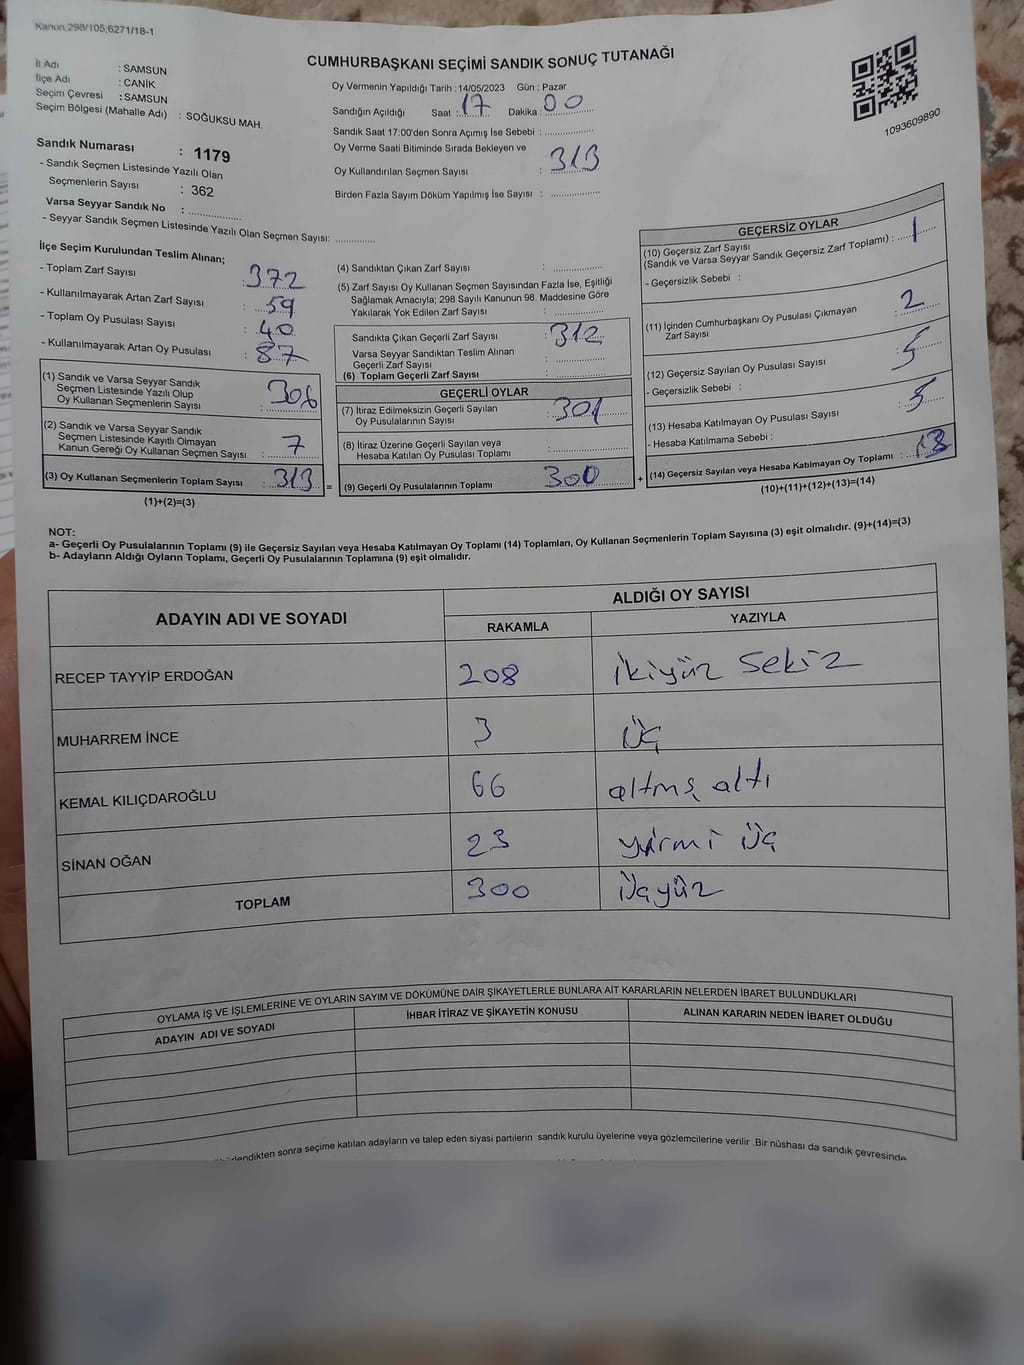 Kanun;298/105;6271/18-1
CUMHURBAŞKANI SEÇİMİ SANDIK SONUÇ TUTANAĞI
İl Adı : SAMSUN
İlçe Adı : CANİK
Seçim Çevresi : SAMSUN
Seçim Bölgesi (Mahalle Adı) : SOĞUKSU MAH.
Sandık Numarası : 1179
- Sandık Seçmen Listesinde Yazılı Olan
Seçmenlerin Sayısı : 362
Varsa Seyyar Sandık No : ..................
- Seyyar Sandık Seçmen Listesinde Yazılı Olan Seçmen Sayısı: .............
Oy Vermenin Yapıldığı Tarih : 14/05/2023 Gün : Pazar
Sandığın Açıldığı Saat : 17 Dakika : 00
Sandık Saat 17:00'den Sonra Açımış İse Sebebi : ................
Oy Verme Saati Bitiminde Sırada Bekleyen ve
Oy Kullandırılan Seçmen Sayısı : 313
Birden Fazla Sayım Döküm Yapılmış İse Sayısı : ................
1093609890
İlçe Seçim Kurulundan Teslim Alınan;
- Toplam Zarf Sayısı : 372
- Kullanılmayarak Artan Zarf Sayısı : 59
- Toplam Oy Pusulası Sayısı : 40
- Kullanılmayarak Artan Oy Pusulası : 87
(1) Sandık ve Varsa Seyyar Sandık
Seçmen Listesinde Yazılı Olup
Oy Kullanan Seçmenlerin Sayısı : 306
(2) Sandık ve Varsa Seyyar Sandık
Seçmen Listesinde Kayıtlı Olmayan
Kanun Gereği Oy Kullanan Seçmen Sayısı : 7
(3) Oy Kullanan Seçmenlerin Toplam Sayısı : 313
(1)+(2)=(3)
=
(4) Sandıktan Çıkan Zarf Sayısı : ................
(5) Zarf Sayısı Oy Kullanan Seçmen Sayısından Fazla İse, Eşitliği
Sağlamak Amacıyla; 298 Sayılı Kanunun 98. Maddesine Göre
Yakılarak Yok Edilen Zarf Sayısı : ................
Sandıkta Çıkan Geçerli Zarf Sayısı : 312
Varsa Seyyar Sandıktan Teslim Alınan
Geçerli Zarf Sayısı : ................
(6) Toplam Geçerli Zarf Sayısı : ................
GEÇERLİ OYLAR
(7) İtiraz Edilmeksizin Geçerli Sayılan
Oy Pusulalarının Sayısı : 301
(8) İtiraz Üzerine Geçerli Sayılan veya
Hesaba Katılan Oy Pusulası Toplamı : ................
(9) Geçerli Oy Pusulalarının Toplamı : 300
+
GEÇERSİZ OYLAR
(10) Geçersiz Zarf Sayısı
(Sandık ve Varsa Seyyar Sandık Geçersiz Zarf Toplamı) : 1
- Geçersizlik Sebebi :
(11) İçinden Cumhurbaşkanı Oy Pusulası Çıkmayan
Zarf Sayısı : 2
(12) Geçersiz Sayılan Oy Pusulası Sayısı : 5
- Geçersizlik Sebebi :
(13) Hesaba Katılmayan Oy Pusulası Sayısı : 5
- Hesaba Katılmama Sebebi :
(14) Geçersiz Sayılan veya Hesaba Katılmayan Oy Toplamı : 13
(10)+(11)+(12)+(13)=(14)
NOT:
a- Geçerli Oy Pusulalarının Toplamı (9) ile Geçersiz Sayılan veya Hesaba Katılmayan Oy Toplamı (14) Toplamları, Oy Kullanan Seçmenlerin Toplam Sayısına (3) eşit olmalıdır. (9)+(14)=(3)
b- Adayların Aldığı Oyların Toplamı, Geçerli Oy Pusulalarının Toplamına (9) eşit olmalıdır.
ADAYIN ADI VE SOYADI ALDIĞI OY SAYISI
RAKAMLA YAZIYLA
RECEP TAYYİP ERDOĞAN 208 ikiyüz sekiz
MUHARREM İNCE 3 üç
KEMAL KILIÇDAROĞLU 66 altmş altı
SİNAN OĞAN 23 yirmi üç
TOPLAM 300 üçyüz
OYLAMA İŞ VE İŞLEMLERİNE VE OYLARIN SAYIM VE DÖKÜMÜNE DAİR ŞİKAYETLERLE BUNLARA AİT KARARLARIN NELERDEN İBARET BULUNDUKLARI
ADAYIN ADI VE SOYADI İHBAR İTİRAZ VE ŞİKAYETİN KONUSU ALINAN KARARIN NEDEN İBARET OLDUĞU
sonra seçime katılan adayların ve talep eden siyasi partilerin sandık kurulu üyelerine veya gözlemcilerine verilir .Bir nüshası da sandık çevresinde